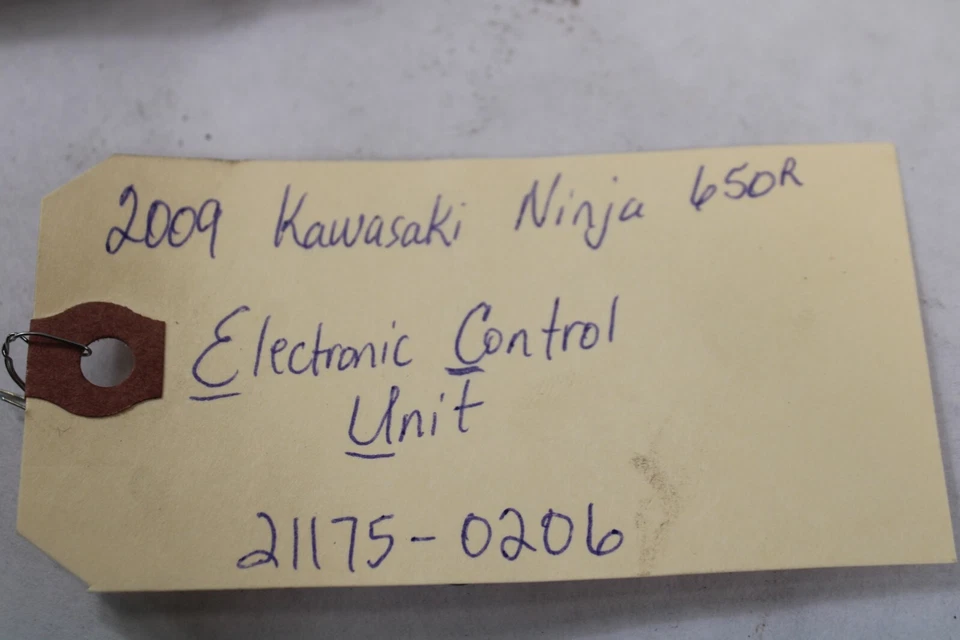 2009 Kawasaki Ninja 650R
Electronic Control
Unit
21175-0206